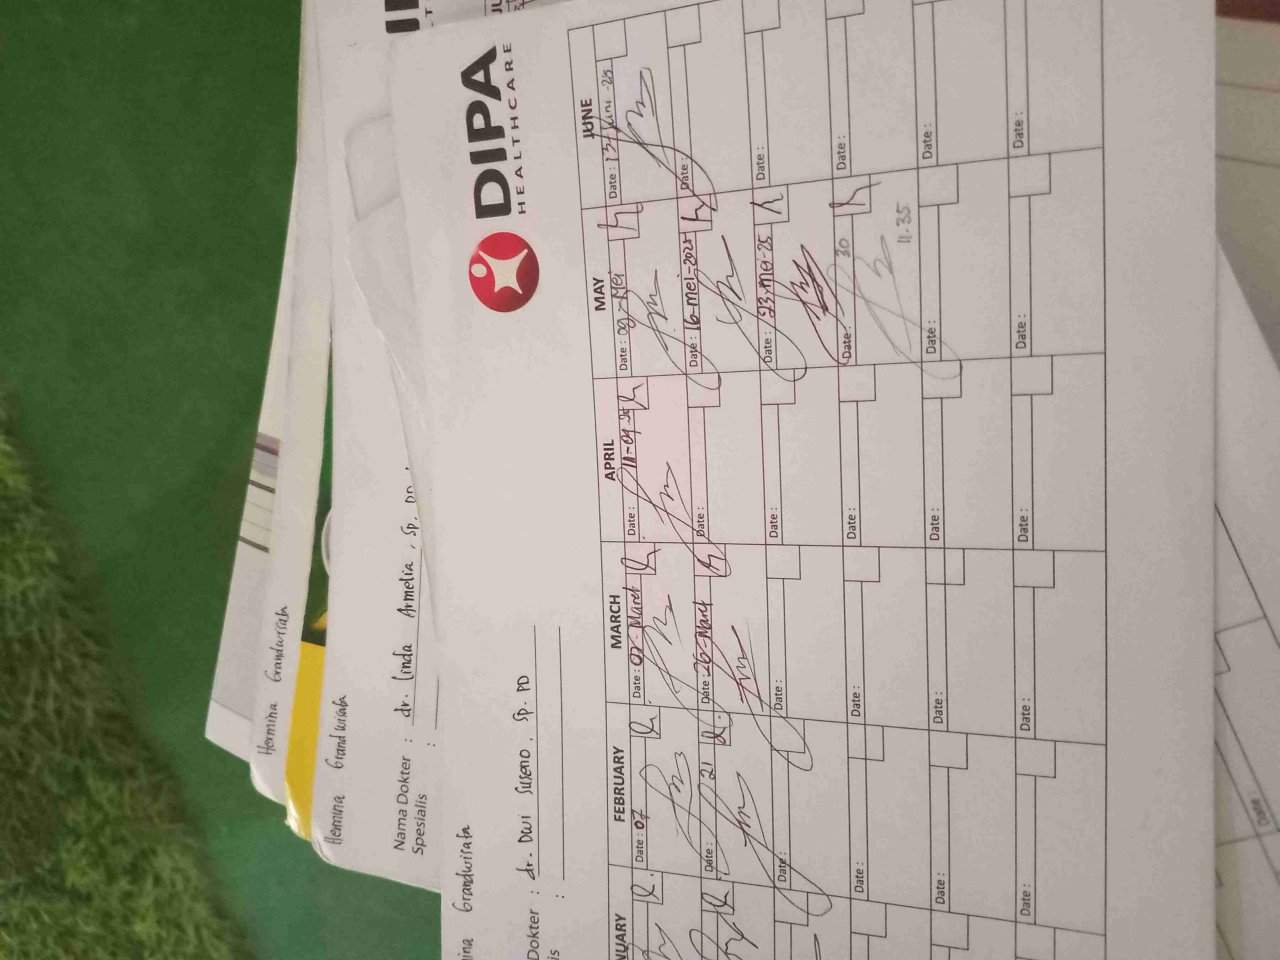 Hermina Grandwisata
Hermina Grandwisata
Nama Dokter : dr. Linda Armelia, Sp. PD.
Spesialis :
DIPA
HEALTHCARE
Grandwisata
Dokter : dr. Dwi Suseno, Sp. PD
is :
NUARY FEBRUARY MARCH APRIL MAY JUNE
Date : 07 Date : 07-Maret Date : 11-04-25 Date : 09-Mei Date : 13-Juni-25
Date : 21 Date : 26-Maret Date : Date : 16-Mei-2025 Date :
Date : Date : Date : Date : 23-Mei-25 Date :
Date : Date : Date : Date : 30 Date :
11.35
Date : Date : Date : Date : Date :
Date : Date : Date : Date : Date :
Date :